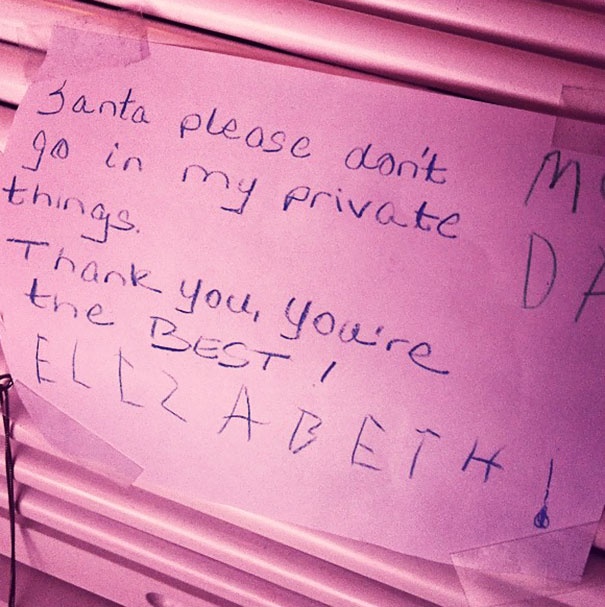 Santa please don't
go in my private
things.
Thank you, you're
the BEST!
ELIZABETH!